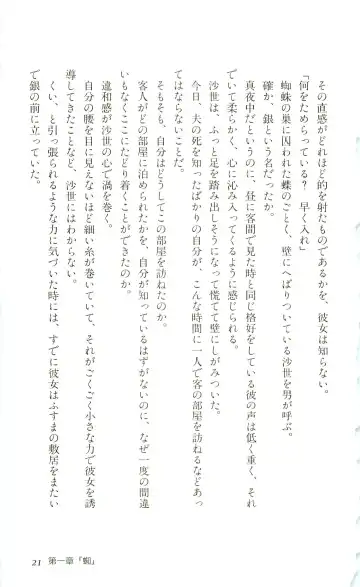 その直感がどれほど的を射たものであるかを、彼女は知らない。
「何をためらっている? 早く入れ」
蜘蛛の巣に囚われた蝶のごとく、壁にへばりついている沙世を男が呼ぶ。
確か、銀という名だったか。
真夜中だというのに、昼に客間で見た時と同じ格好をしている彼の声は低く重く、それ
でいて柔らかく、心に沁み入ってくるように感じられる。
沙世は、ふっと足を踏み出しそうになって慌てて壁にしがみついた。
今日、夫の死を知ったばかりの自分が、こんな時間に一人で客の部屋を訪ねるなどあっ
てはならないことだ。
そもそも、自分はどうしてこの部屋を訪ねたのか。
客人がどの部屋に泊められたかを、自分が知っているはずがないのに、なぜ一度の間違
いもなくここにたどり着くことができたのか。
違和感が沙世の心で渦を巻く。
自分の腰を目に見えないほど細い糸が巻いていて、それがごくごく小さな力で彼女を誘
導してきたことなど、沙世にはわからない。
くい、と引っ張られるような力に気づいた時には、すでに彼女はふすまの敷居をまたい
で銀の前に立っていた。
21 第一章「蜘」